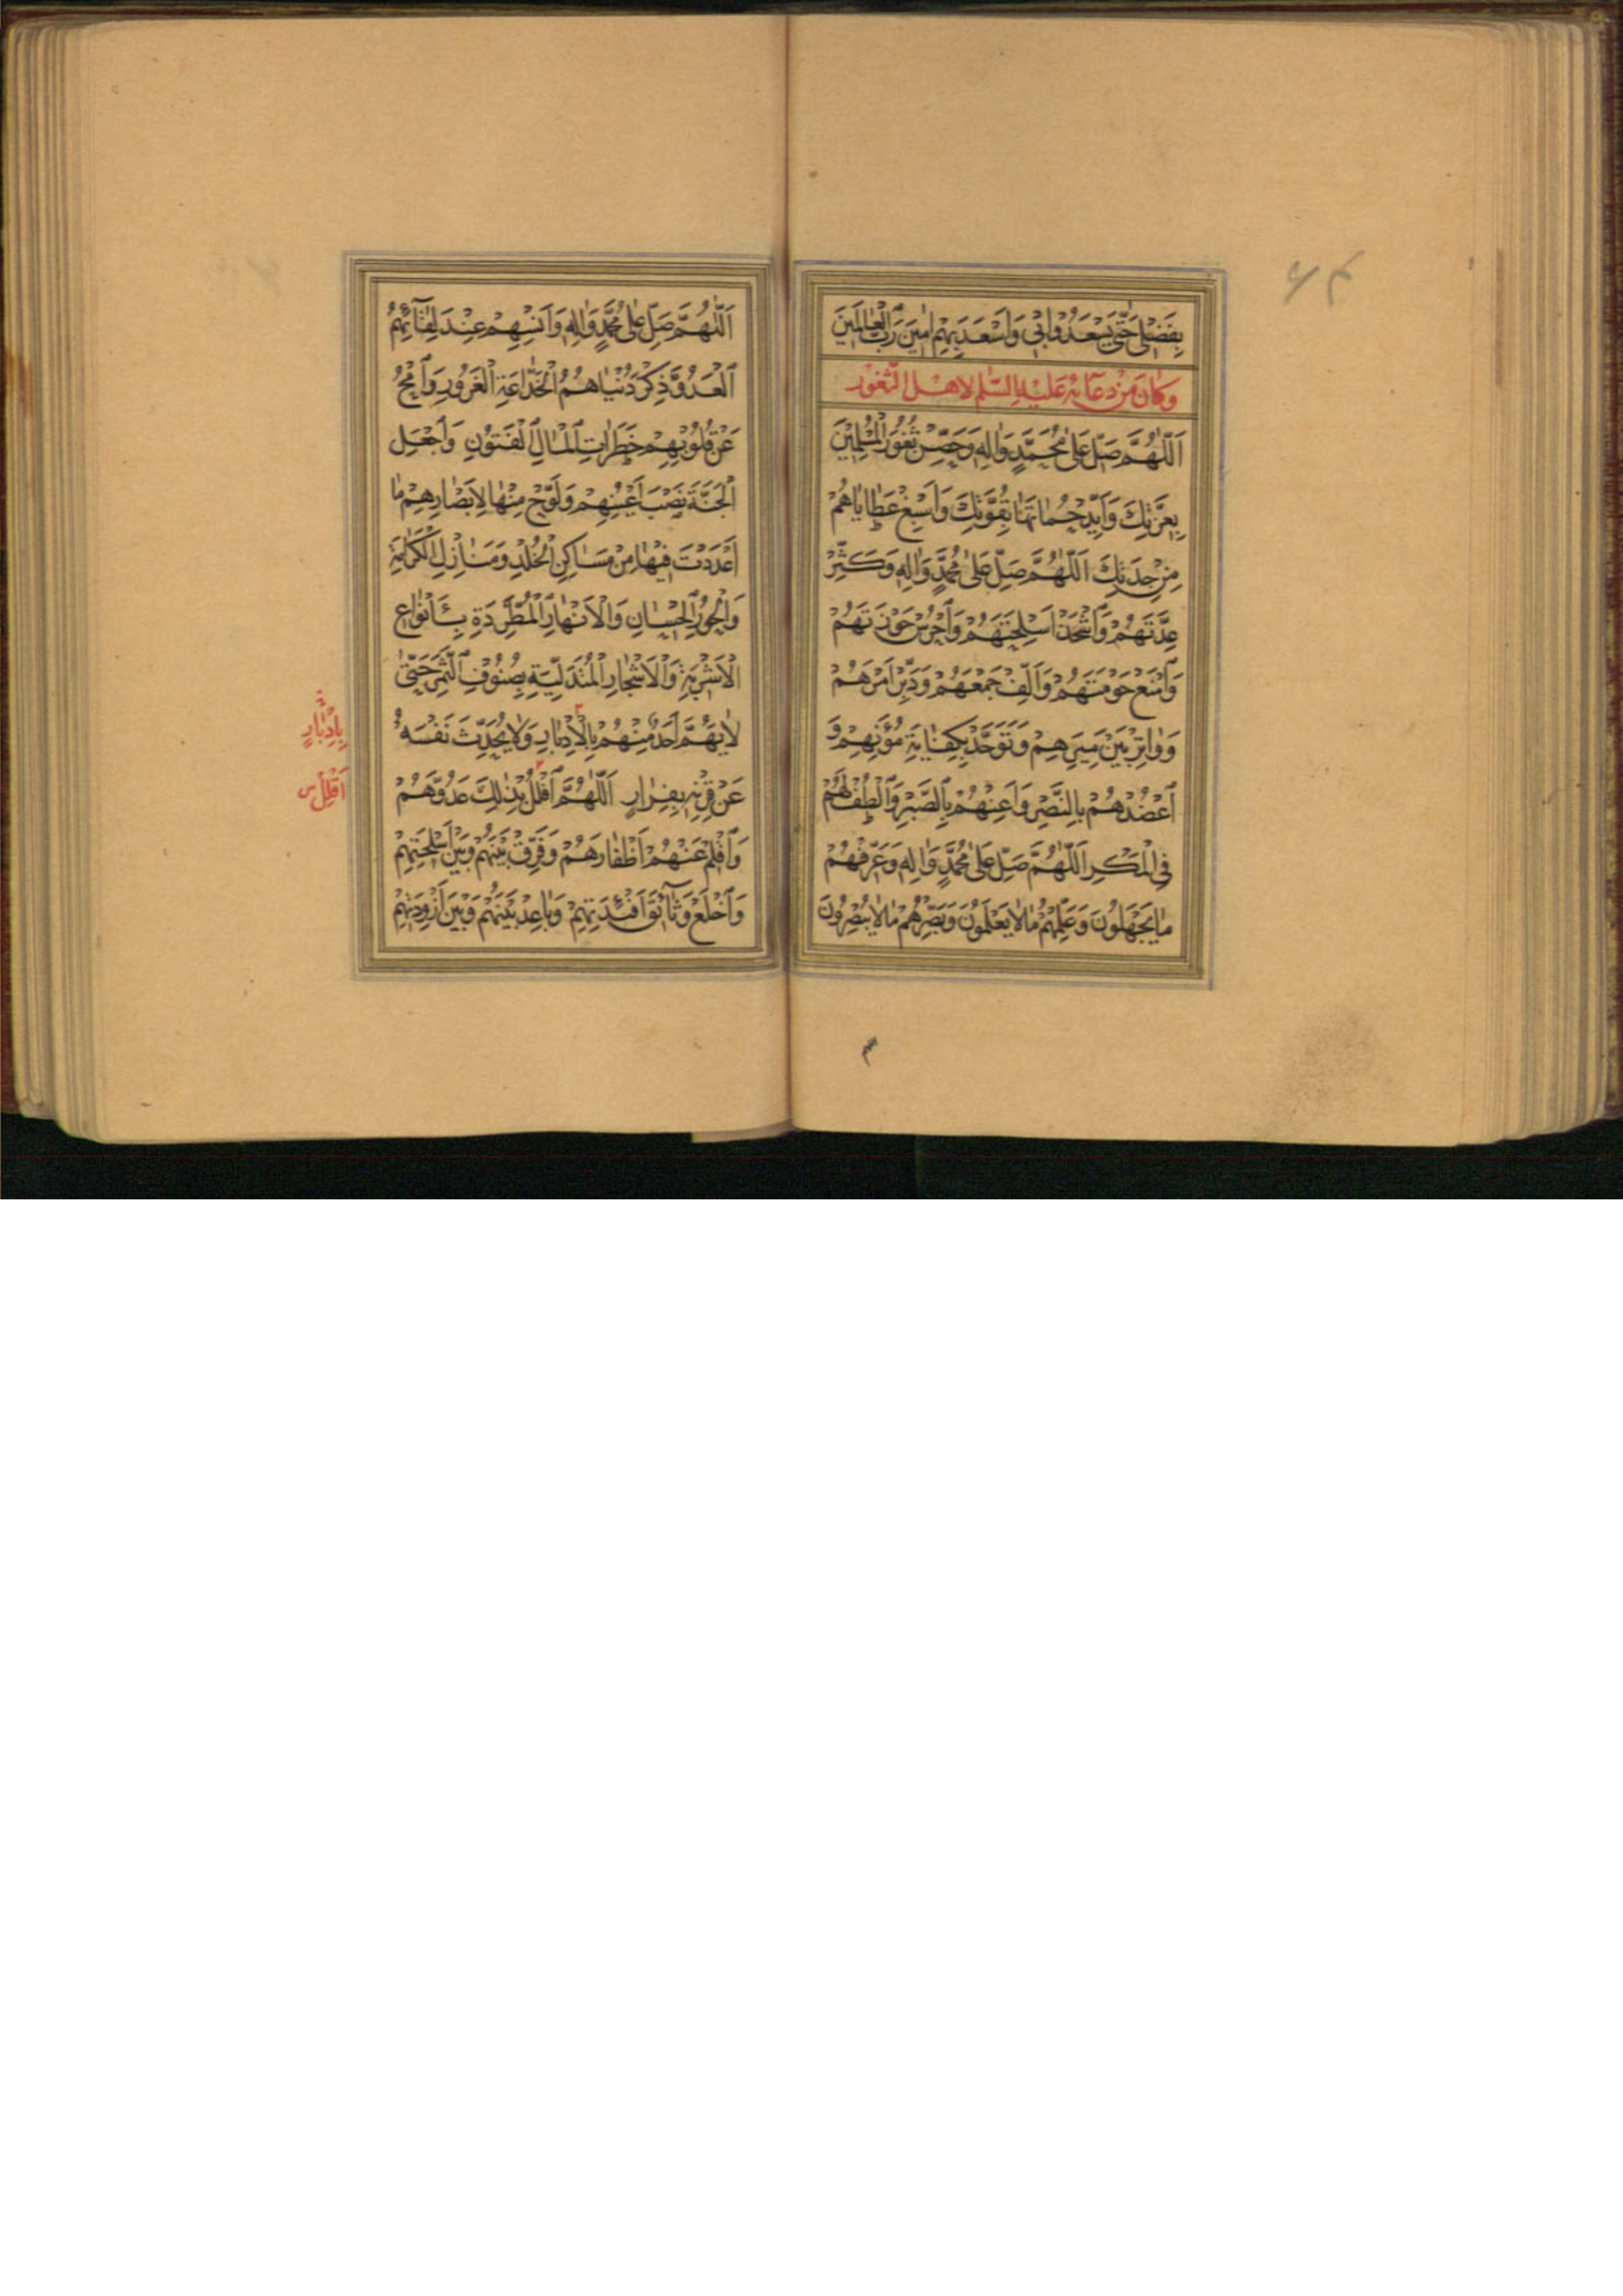 بِفَضْلِي حَتَّى يَسْعَدُوا بِي وَاَسْعَدَ بِهِمْ اٰمِينَ رَبَّ الْعَالَمِينَ
وَكَانَ مِنْ دُعَائِهِ عَلَيْهِ السَّلَم لاهل الثُّغُور
اَللّٰهُمَّ صَلِّ عَلٰى مُحَمَّدٍ وَاٰلِهِ وَحَصِّنْ ثُغُورَ الْمُسْلِمِينَ
بِعِزَّتِكَ وَاَيِّدْ حُمَاتَهَا بِقُوَّتِكَ وَاَسْبِغْ عَطَايَاهُمْ
مِنْ جِدَتِكَ اَللّٰهُمَّ صَلِّ عَلٰى مُحَمَّدٍ وَاٰلِهِ وَكَثِّرْ
عِدَّتَهُمْ وَاشْحَذْ اَسْلِحَتَهُمْ وَاحْرُسْ حَوْزَتَهُمْ
وَامْنَعْ حَوْمَتَهُمْ وَاَلِّفْ جَمْعَهُمْ وَدَبِّرْ اَمْرَهُمْ
وَوَاتِرْ بَيْنَ مِيَرِهِمْ وَتَوَحَّدْ بِكِفَايَةِ مُؤَنِهِمْ وَ
اعْضُدْهُمْ بِالنَّصْرِ وَاَعِنْهُمْ بِالصَّبْرِ وَالْطُفْ لَهُمْ
فِي الْمَكْرِ اَللّٰهُمَّ صَلِّ عَلٰى مُحَمَّدٍ وَاٰلِهِ وَعَرِّفْهُمْ
مَا يَجْهَلُونَ وَعَلِّمْهُمْ مَا لَا يَعْلَمُونَ وَبَصِّرْهُمْ مَا لَا يُبْصِرُونَ
اَللّٰهُمَّ صَلِّ عَلٰى مُحَمَّدٍ وَاٰلِهِ وَاَنْسِهِمْ عِنْدَ لِقَائِهِمُ
الْعَدُوَّ ذِكْرَ دُنْيَاهُمُ الْخَدَّاعَةِ الْغَرُورِ وَامْحُ
عَنْ قُلُوبِهِمْ خَطَرَاتِ الْمَالِ الْفَتُونِ وَاجْعَلِ
الْجَنَّةَ نَصْبَ اَعْيُنِهِمْ وَلَوِّحْ مِنْهَا لِاَبْصَارِهِمْ مَا
اَعْدَدْتَ فِيهَا مِنْ مَسَاكِنِ الْخُلْدِ وَمَنَازِلِ الْكَرَامَةِ
وَالْحُورِ الْحِسَانِ وَالْاَنْهَارِ الْمُطَّرِدَةِ بِاَنْوَاعِ
الْاَشْرِبَةِ وَالْاَشْجَارِ الْمُتَدَلِّيَةِ بِصُنُوفِ الثَّمَرِ حَتّٰى
لَا يَهُمَّ اَحَدٌ مِنْهُمْ بِالْاِدْبَارِ وَلَا يُحَدِّثَ نَفْسَهُ
بِادْبَارٍ
عَنْ قِرْنِهِ بِفِرَارٍ اَللّٰهُمَّ افْلُلْ بِذٰلِكَ عَدُوَّهُمْ
اَقْلِلْ س
وَاقْلِمْ عَنْهُمْ اَظْفَارَهُمْ وَفَرِّقْ بَيْنَهُمْ وَبَيْنَ اَسْلِحَتِهِمْ
وَاخْلَعْ وَثَائِقَ اَفْئِدَتِهِمْ وَبَاعِدْ بَيْنَهُمْ وَبَيْنَ اَزْوِدَتِهِمْ